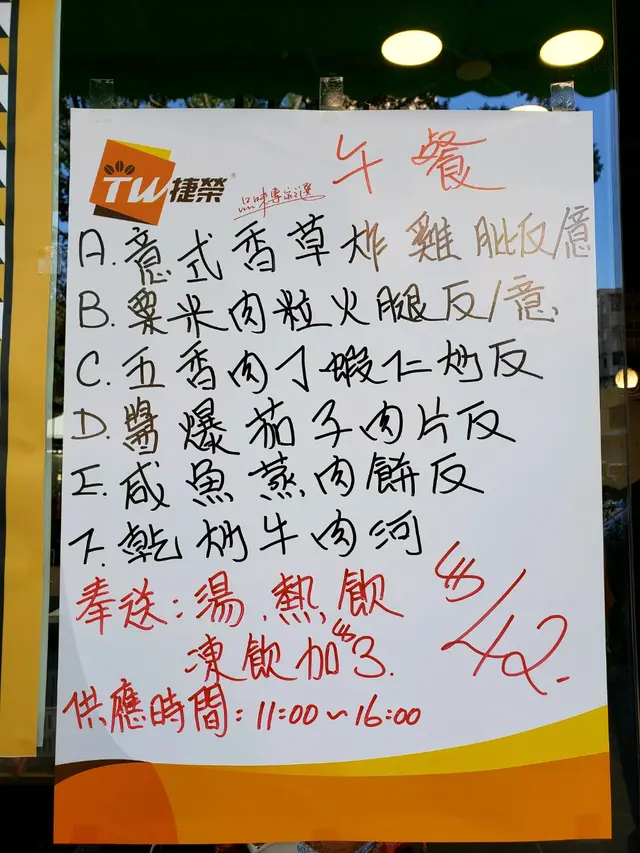 午餐
TW捷榮®
品味專家之選
A. 意式香草炸雞肶反/意
B. 粟米肉粒火腿反/意
C. 五香肉丁蝦仁炒反
D. 醬爆茄子肉片反
E. 咸魚蒸肉餅反
F. 乾炒牛肉河
奉送:湯.熱飲
凍飲加$3.
$/42.
供應時間:11:00~16:00